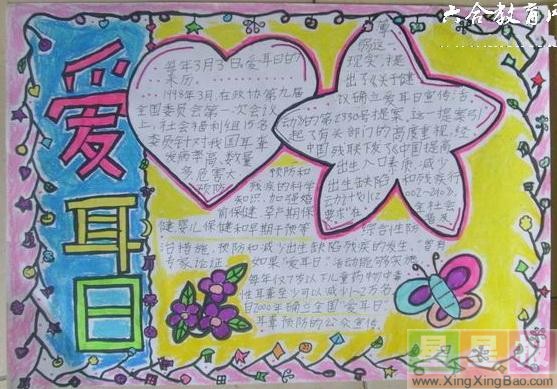 六合教育
爱耳日
每年3月3日爱耳日的
来历。
1998年3月,在政协第九届
全国委员会第一次会议
上,社会福利组15名
委员针对我国耳聋
发病率高、数量
多、危害大、
预防
现实,
出了《关于建
议确立爱耳日宣传活
动》的第2330号提案。这一提案引
起了有关部门的高度重视。经
中国残联
出生人口素质,减少
出生缺陷和残疾行
动计划(2002-2
要求"在全社会
普及
预防和
残疾的科学
知识,加强婚
前保健、孕产期保
健、婴儿保健和早期干预等
综合性防
治措施,预防和减少出生缺陷残疾的发生。"曾有
专家论证,如果"爱耳日"活动能够实施
每年仅7岁以下儿童药物中毒
性耳聋至少可以减少1~2万名
2000年确立全国"爱耳日"
耳聋预防的公众宣传
星星
www.XingXingBao.com